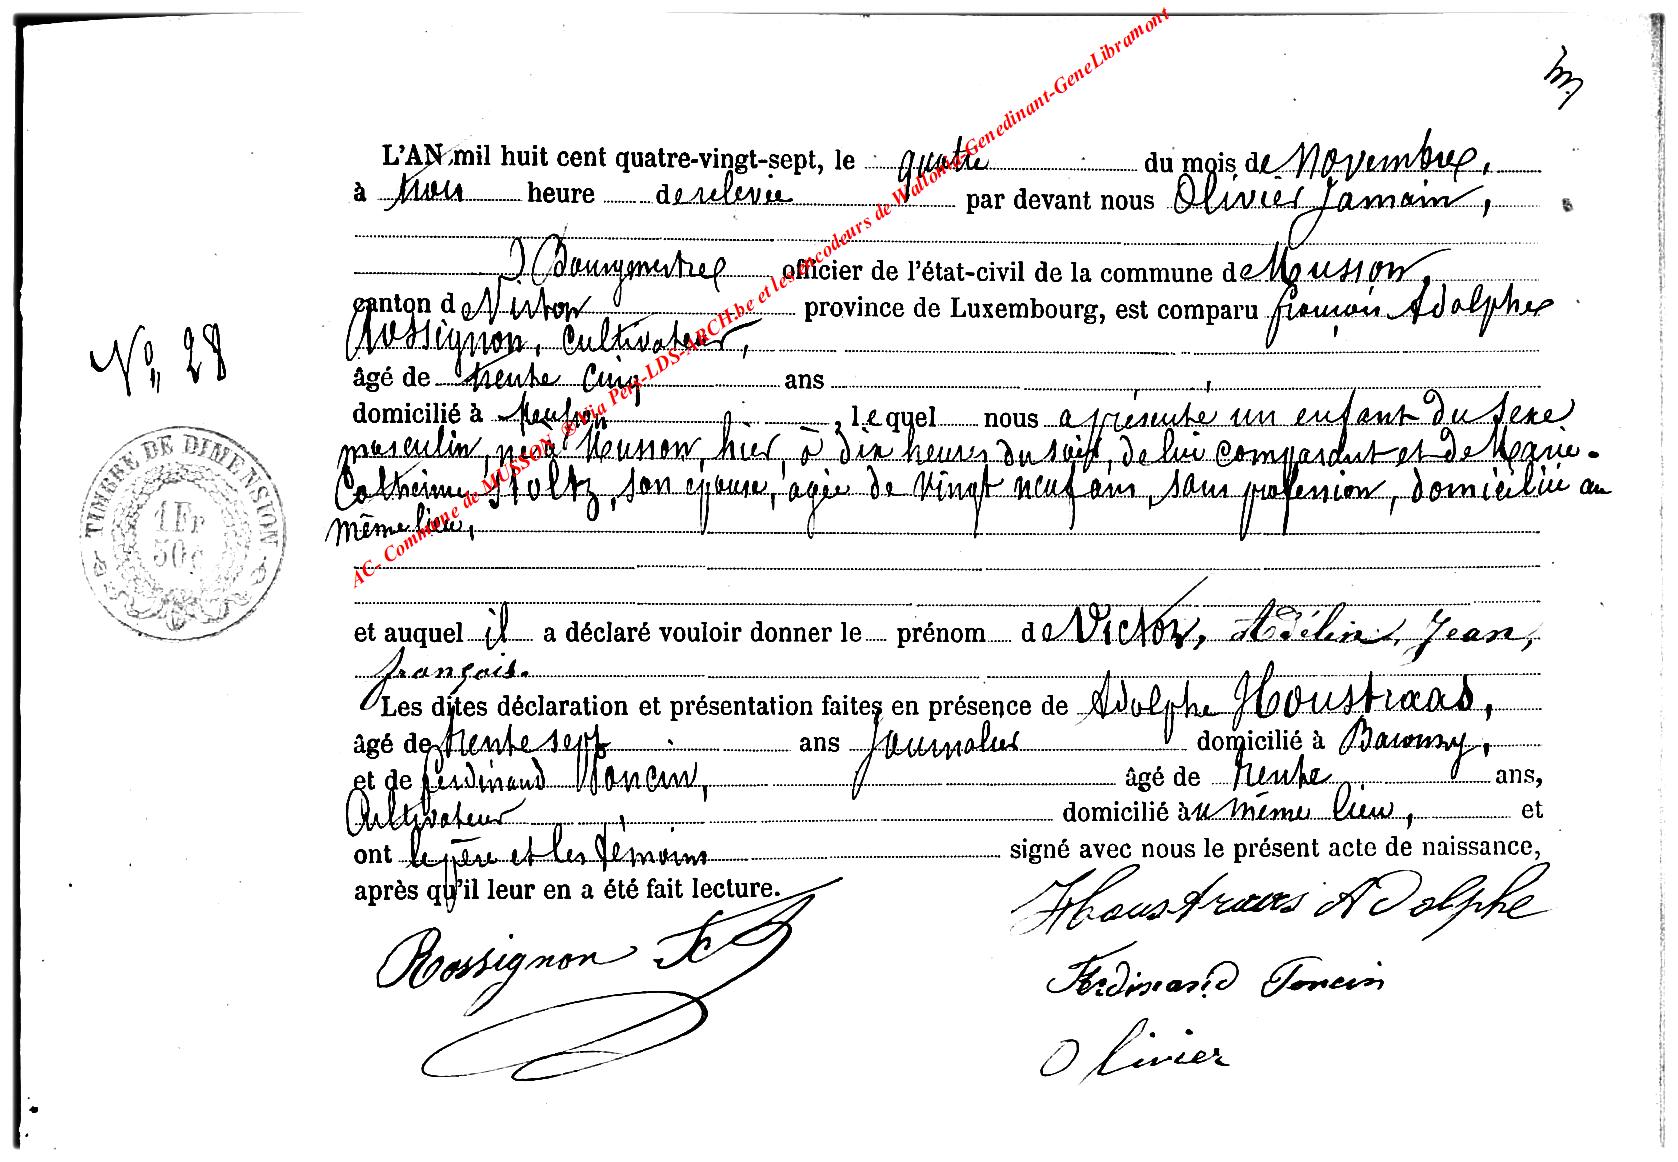 L'AN mil huit cent quatre-vingt-sept, le quatre du mois de Novembre,
à trois heure de relevée par devant nous Olivier Jamain,
Bourgmestre officier de l'état-civil de la commune de Musson,
canton de Virton province de Luxembourg, est comparu françois Adolphe
Rossignon, Cultivateur,
âgé de trente cinq ans
domicilié à Musson, lequel nous a présenté un enfant du sexe
masculin, né à Musson, hier, à dix heures du soir, de lui comparant et de Marie-
Catherine Stoltz, son épouse, âgée de vingt neuf ans, sans profession, domiciliée au
même lieu,
No 28
TIMBRE DE DIMENSION
1 Fr
50 c
et auquel il a déclaré vouloir donner le prénom de Victor, Adélin, Jean,
françois.
Les dites déclaration et présentation faites en présence de Adolphe Houstraas,
âgé de trente sept ans Journalier domicilié à Baranzy,
et de Ferdinand Poncin, âgé de trente ans,
Cultivateur domicilié au même lieu, et
ont le père et les témoins signé avec nous le présent acte de naissance,
après qu'il leur en a été fait lecture.
Rossignon Fc
Houstraas Adolphe
Ferdinand Poncin
Olivier
AC- Commune de MUSSON ® Via Pers-LDS-ARCH.be et les encodeurs de Wallonia-Genedinant-GeneLibramont